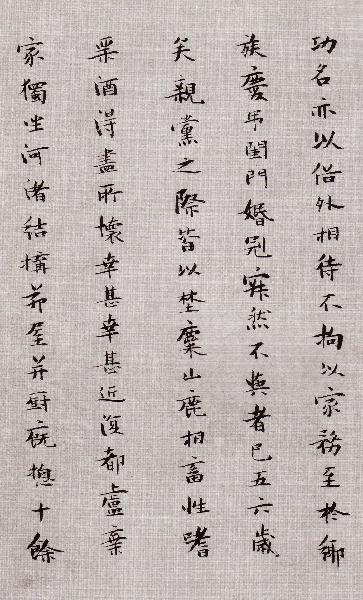 功名亦以俗外相待不拘以家務至於鄉
族慶弔閨門婚冠寂然不與者已五六歲
矣親黨之際皆以埜麋山鹿相畜性嗜
琹酒得盡所懷幸甚幸甚近復都盧棄
家獨坐河渚結構茅屋并廚廐揔十餘